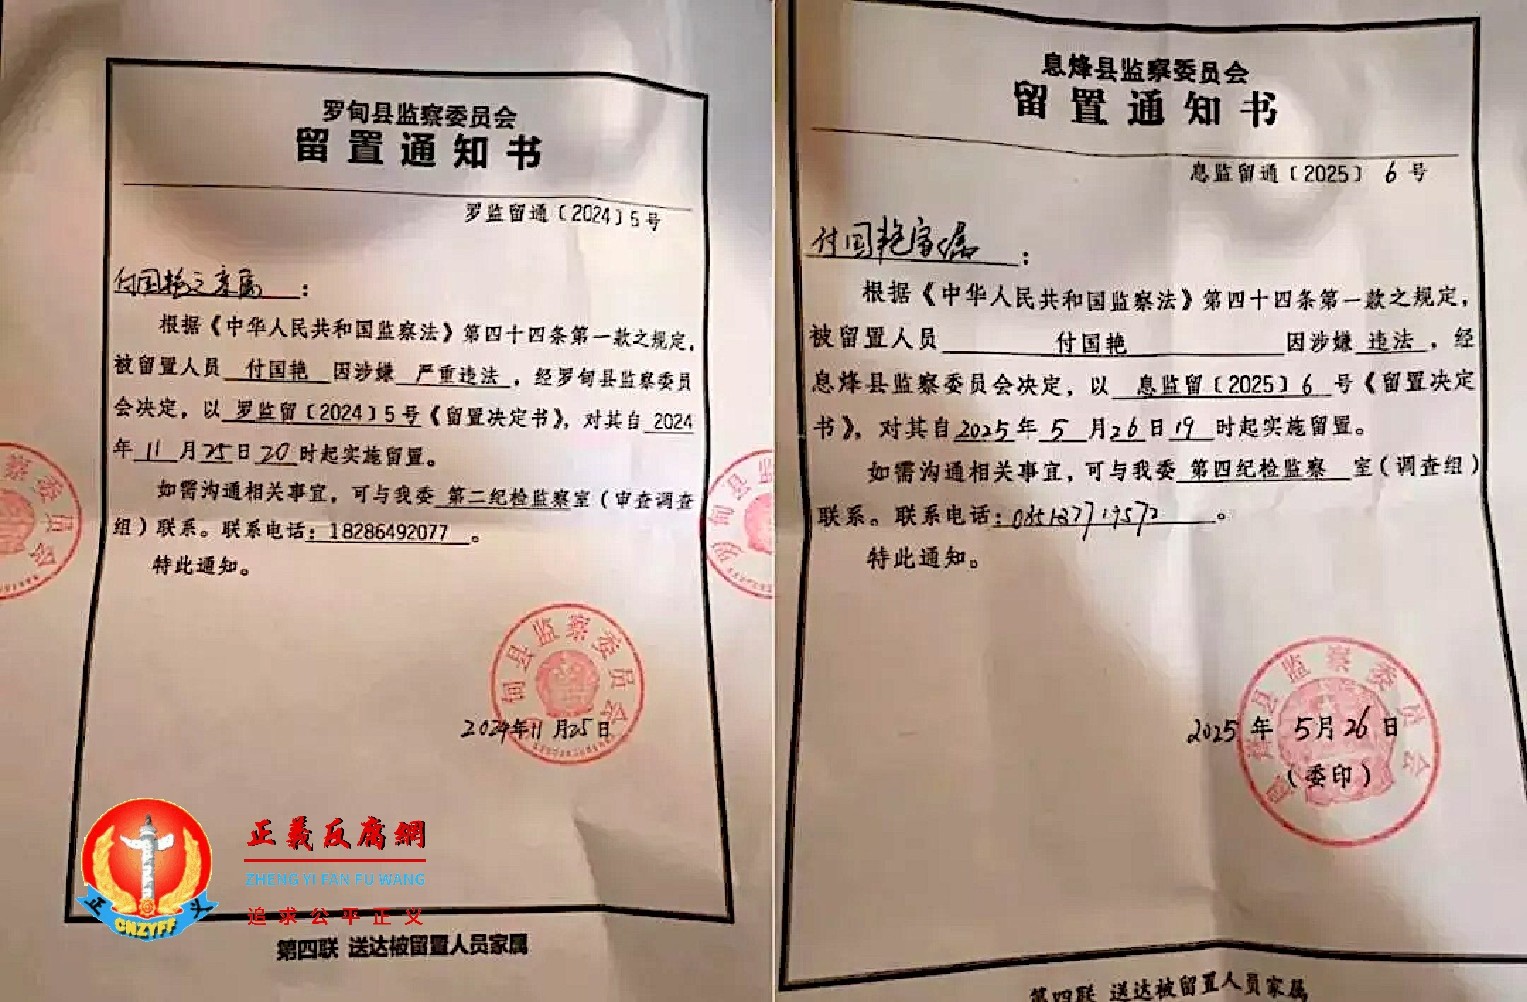 罗甸县监察委员会
留置通知书
罗监留通〔2024〕5号
付国艳之亲属：
根据《中华人民共和国监察法》第四十四条第一款之规定，
被留置人员 付国艳 因涉嫌 严重违法，经罗甸县监察委员
会决定，以 罗监留〔2024〕5号《留置决定书》，对其自 2024
年 11 月 25 日 20 时起实施留置。
如需沟通相关事宜，可与我委 第二纪检监察室（审查调查
组）联系。联系电话：18286492077。
特此通知。
罗甸县监察委员会
2024年11月25日
正義反腐網
ZHENG YI FAN FU WANG
追求公平正义
正 义
CNZYFF
第四联 送达被留置人员家属
息烽县监察委员会
留置通知书
息监留通〔2025〕6号
付国艳家属：
根据《中华人民共和国监察法》第四十四条第一款之规定，
被留置人员 付国艳 因涉嫌 违法，经
息烽县监察委员会决定，以 息监留〔2025〕6 号《留置决定
书》，对其自 2025 年 5 月 26 日 19 时起实施留置。
如需沟通相关事宜，可与我委 第四纪检监察 室（调查组）
联系。联系电话：
特此通知。
息烽县监察委员会
2025 年 5月 26 日
（委印）
第四联 送达被留置人员家属